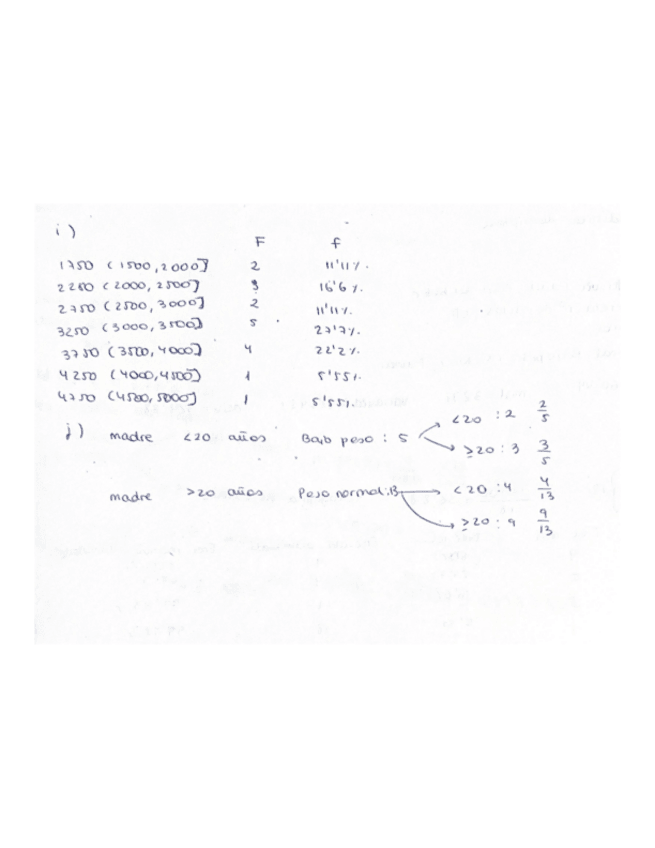 i)
F f
1750 (1500, 2000] 2 11'11%.
2250 (2000, 2500] 3 16'6%.
2750 (2500, 3000] 2 11'11%.
3250 (3000, 3500] 5 27'7%.
3750 (3500, 4000] 4 22'2%.
4250 (4000, 4500] 1 5'55%.
4750 (4500, 5000] 1 5'55%.
<20 : 2 2/5
j) madre <20 años Bajo peso : 5
≥20 : 3 3/5
madre >20 años Peso normal: 13 <20 : 4 4/13
≥20 : 9 9/13